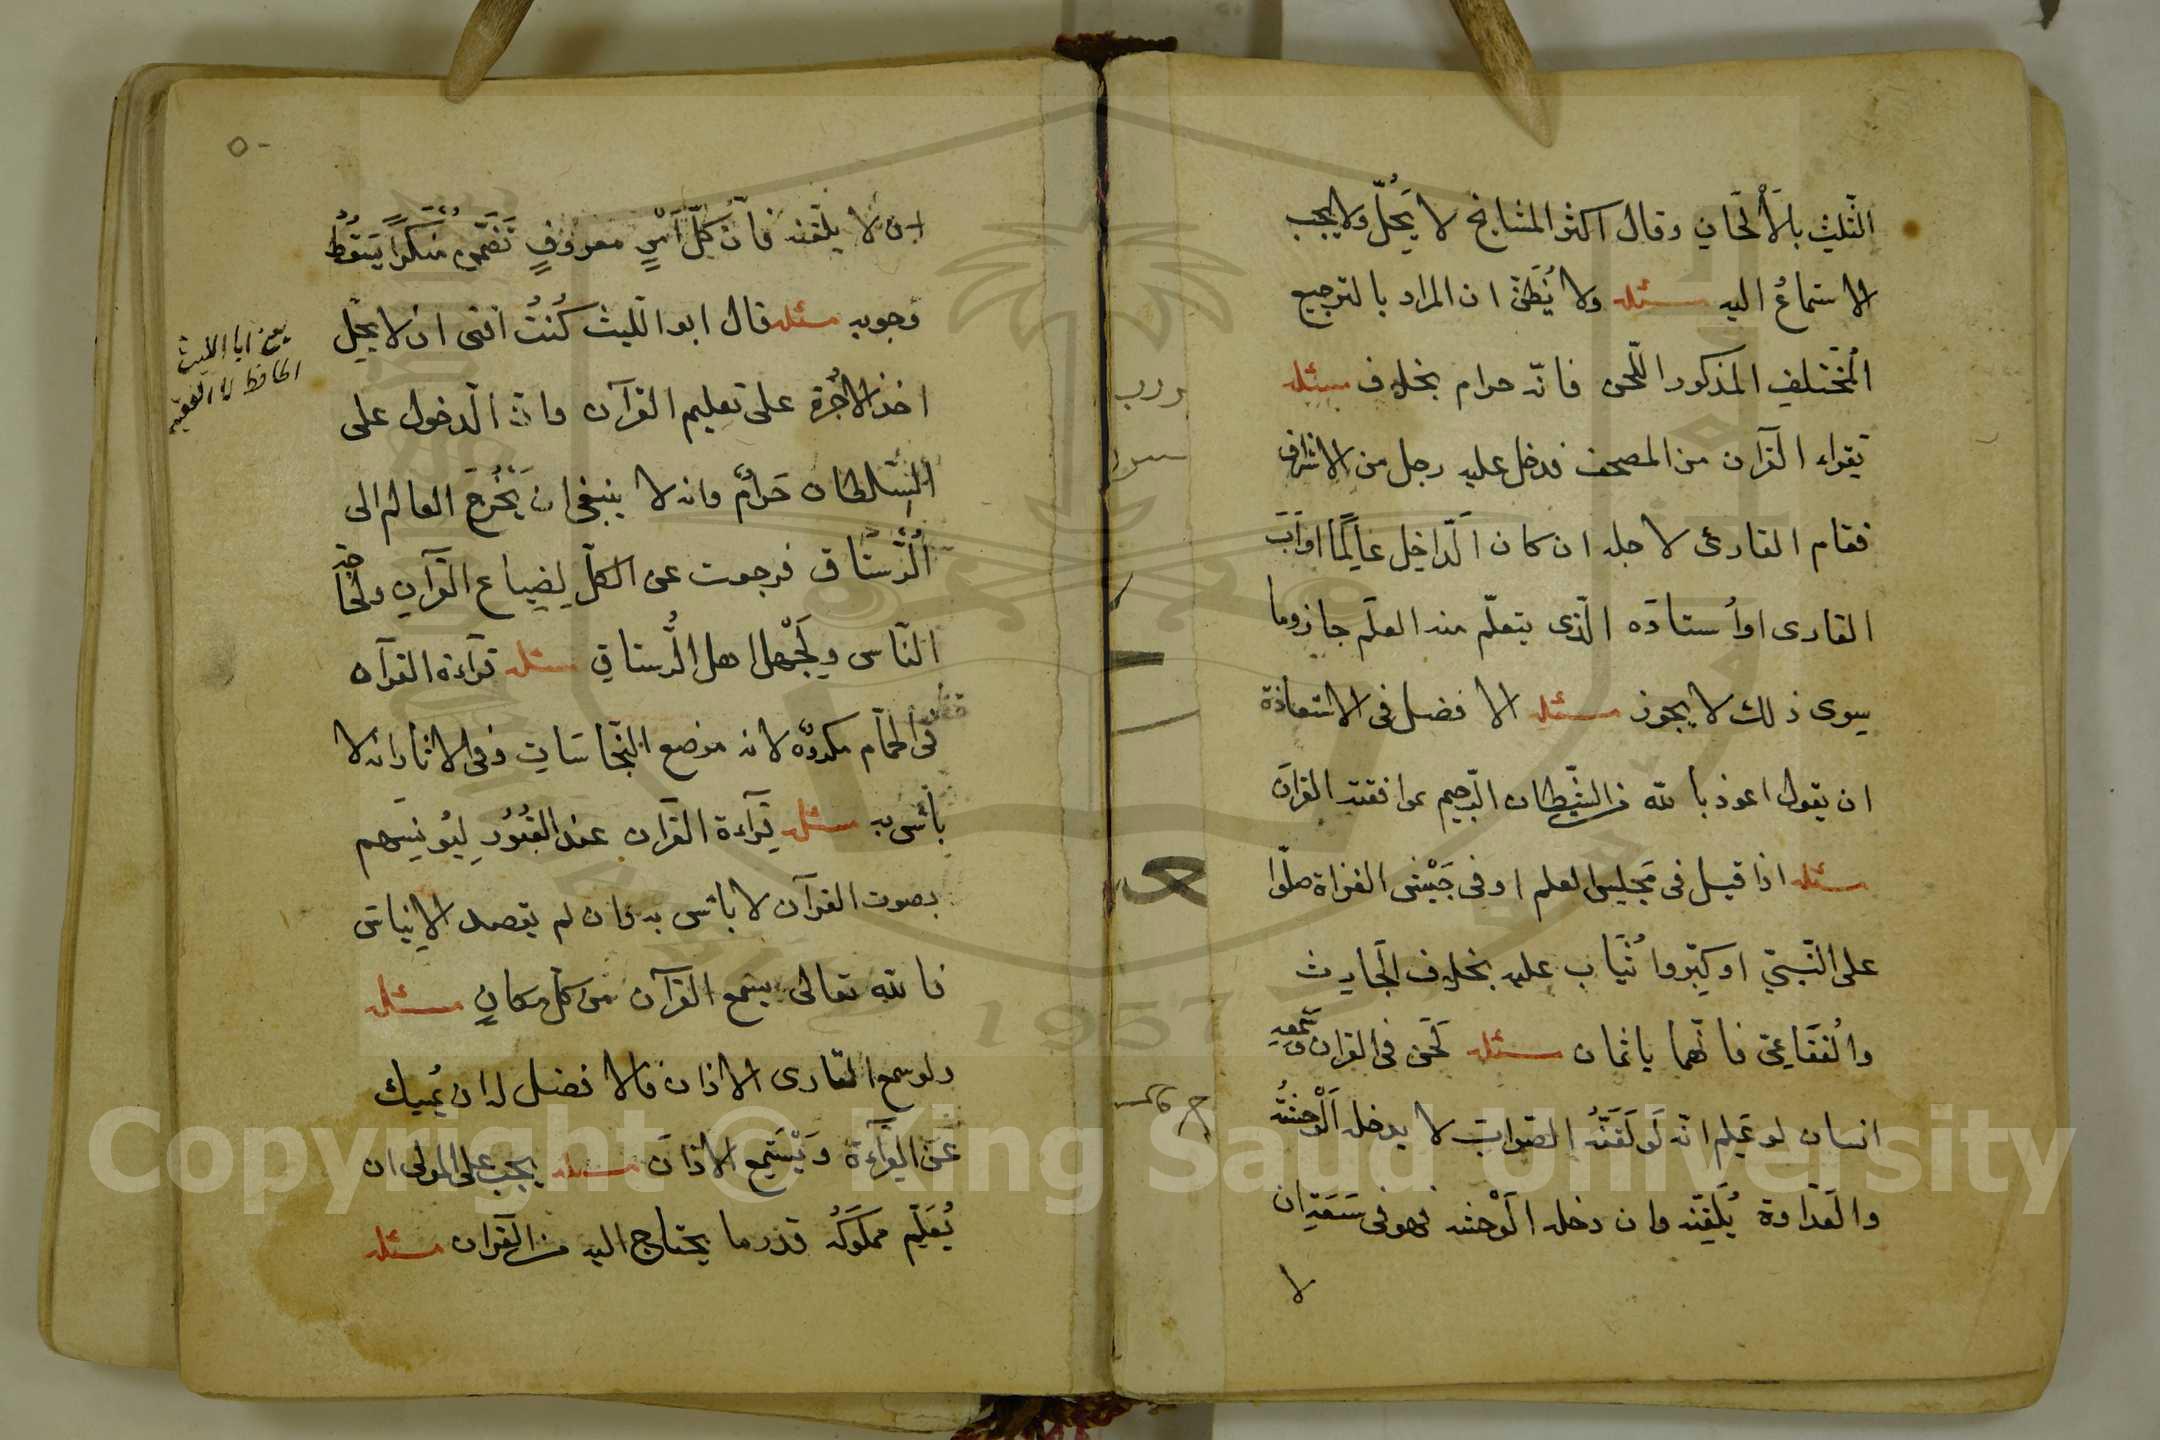 الثّلٰث بالأَلْحَانِ وقال اكثر المشايخ لا يَحِلُّ ولا يجب
الاستماعُ اليه مسئله ولا يُظَنّ ان المراد بالترجيع
المُخْتلِفِ المذكور اللّحن فانّه حرام بخلاف مسئله
يقراء القرآن من المصحف فدخل عليه رجل من الاشراف
فقام القارئ لاجله ان كان الّداخِل عَالِمًا او اَبَ
القارى او اُستاذَه الّذى يتعلّم منه العلم جاز وما
سِوى ذلك لا يجوز مسئله الافضل فى الاستعاذة
ان يقول اعوذ بالله من الشّيطان الرّجيم موافقته القرآن
مسئله اذا قيل فى مَجْلِس العلم او فى جَيْش الغزاة صلّوا
على النّبىّ او كبِّروا يُثَاب عليه بخلاف الحَارِث
والفُقَّاعىّ فانّهما ياثمان مسئله لَحَنَ فى القرآن وسَمِعَه
انسان لو عَلم انّه لَو لَقَّنَهُ الصّوابَ لا يدخله الْوَحْشَةُ
والعَدَاوة يُلَقِّنه وان دخله الوَحْشه فهو فى سَعَةِ ان
لا
ان لا يلقّنه فانّ كلّ اَمْرٍ معروفٍ تَضَمَّن منكرًا يَسْقُطُ
وجوبه مسئله قال ابو اللّيث كُنْتُ افتى ان لا يحلّ
اخذ الاُجْرة على تعليم القرآن وانّ الّدخول على
السّلطان حَرامٌ وانه لا ينبغى ان يَخْرُجَ العالم الى
الرُّسْتَاق فرجعت عن الكلّ لِضياع القرآن ولحَاجَة
النّاس ولِجَهْل اهل الرُّستاق مسئله قرآءة القرآن
فى الحَمّام مكروهٌ لانه موضع النّجاسَات وفى الاثار انه لا
بأس به مسئله قِرآءة القرآن عند القُبُوْرِ لِيُونِسَهم
بصوت القرآن لا بأس به وان لم يقصد الاِيناس
فالله تعالى يسمع القرآن من كلّ مكان مسئله
ولو سمع القارى الاذان فالافضل له ان يُمسِك
عَنِ القِرَآءَة وَيَسْتَمِع الاذانَ مسئله يجب على المولى ان
يُعَلِّم مملوكَهُ قدر ما يحتاج اليه من القرآن مسئله
يعنى ابا الليث
الحافظ لا الفقيه
٥٠
1957
Copyright © King Saud University